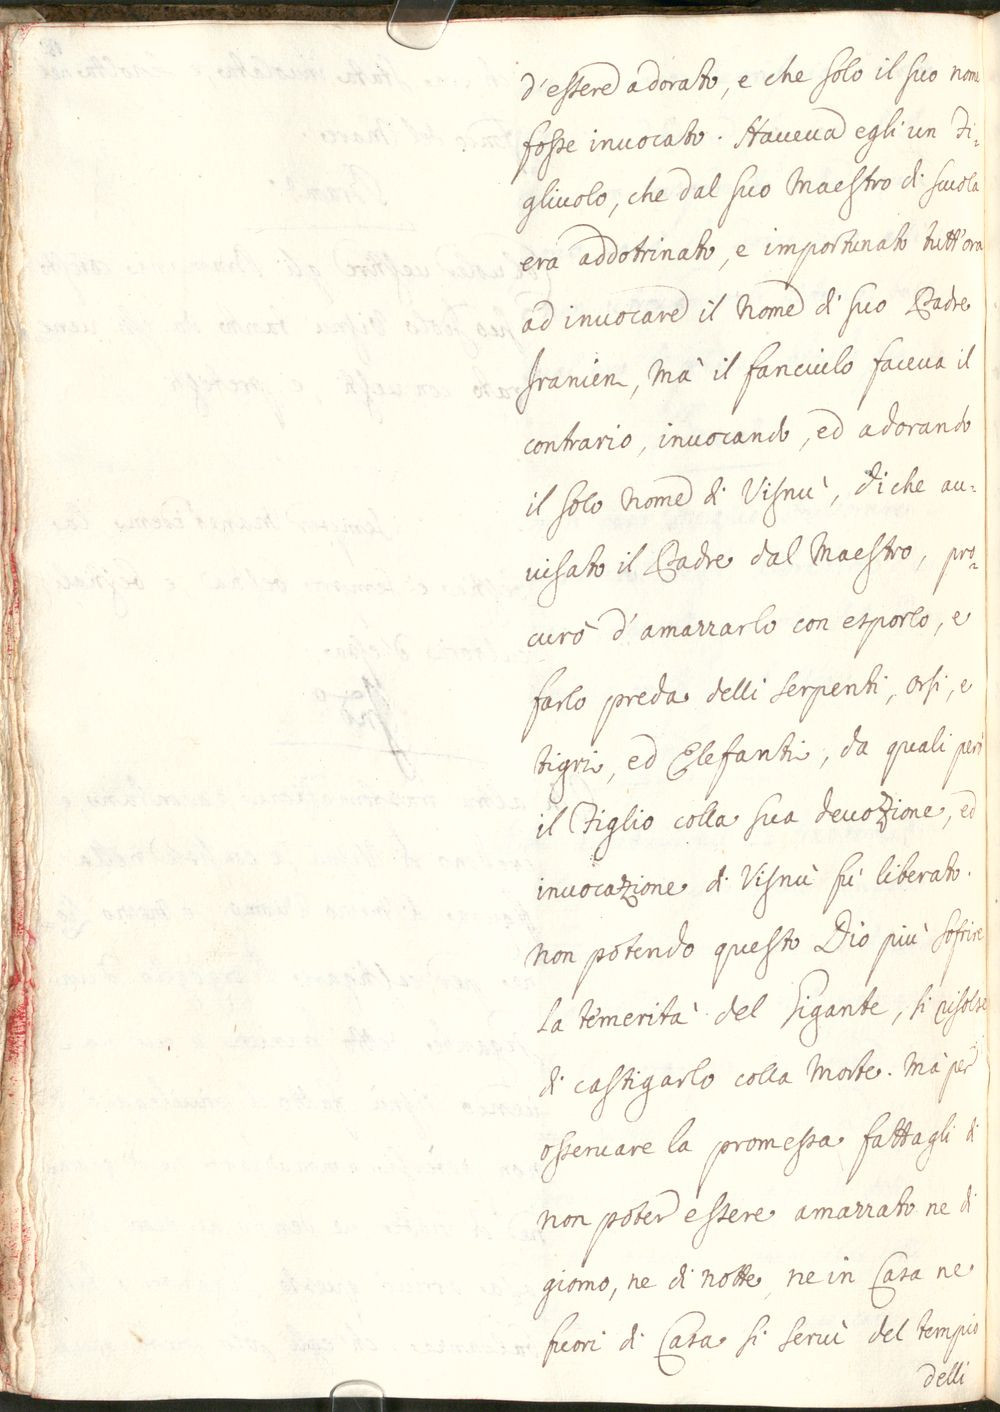 d'essere adorato, e che solo il suo nome
fosse invocato. Haueua egli un Fi-
gliuolo, che dal suo Maestro di scuola
era addotrinato, e importunato tutt'ora
ad inuocare il Nome di suo Padre
Iranien, mà il fanciulo faceua il
contrario, inuocando, ed adorando
il solo Nome di Visnù, di che au-
uisato il Padre dal Maestro, pro-
curò d'amazzarlo con esporlo, e
farlo preda delli serpenti, orsi, e
tigri, ed Elefanti, da quali però
il Figlio colla sua deuozione, ed
inuocazione di Visnù fù liberato.
non potendo questo Dio più sofrire
la temerità del Gigante, si risolse
di castigarlo colla Morte. Mà per
osseruare la promessa fattagli di
non poter essere amazzato ne di
giorno, ne di notte, ne in Casa ne
fuori di Casa si seruì del tempio
delli